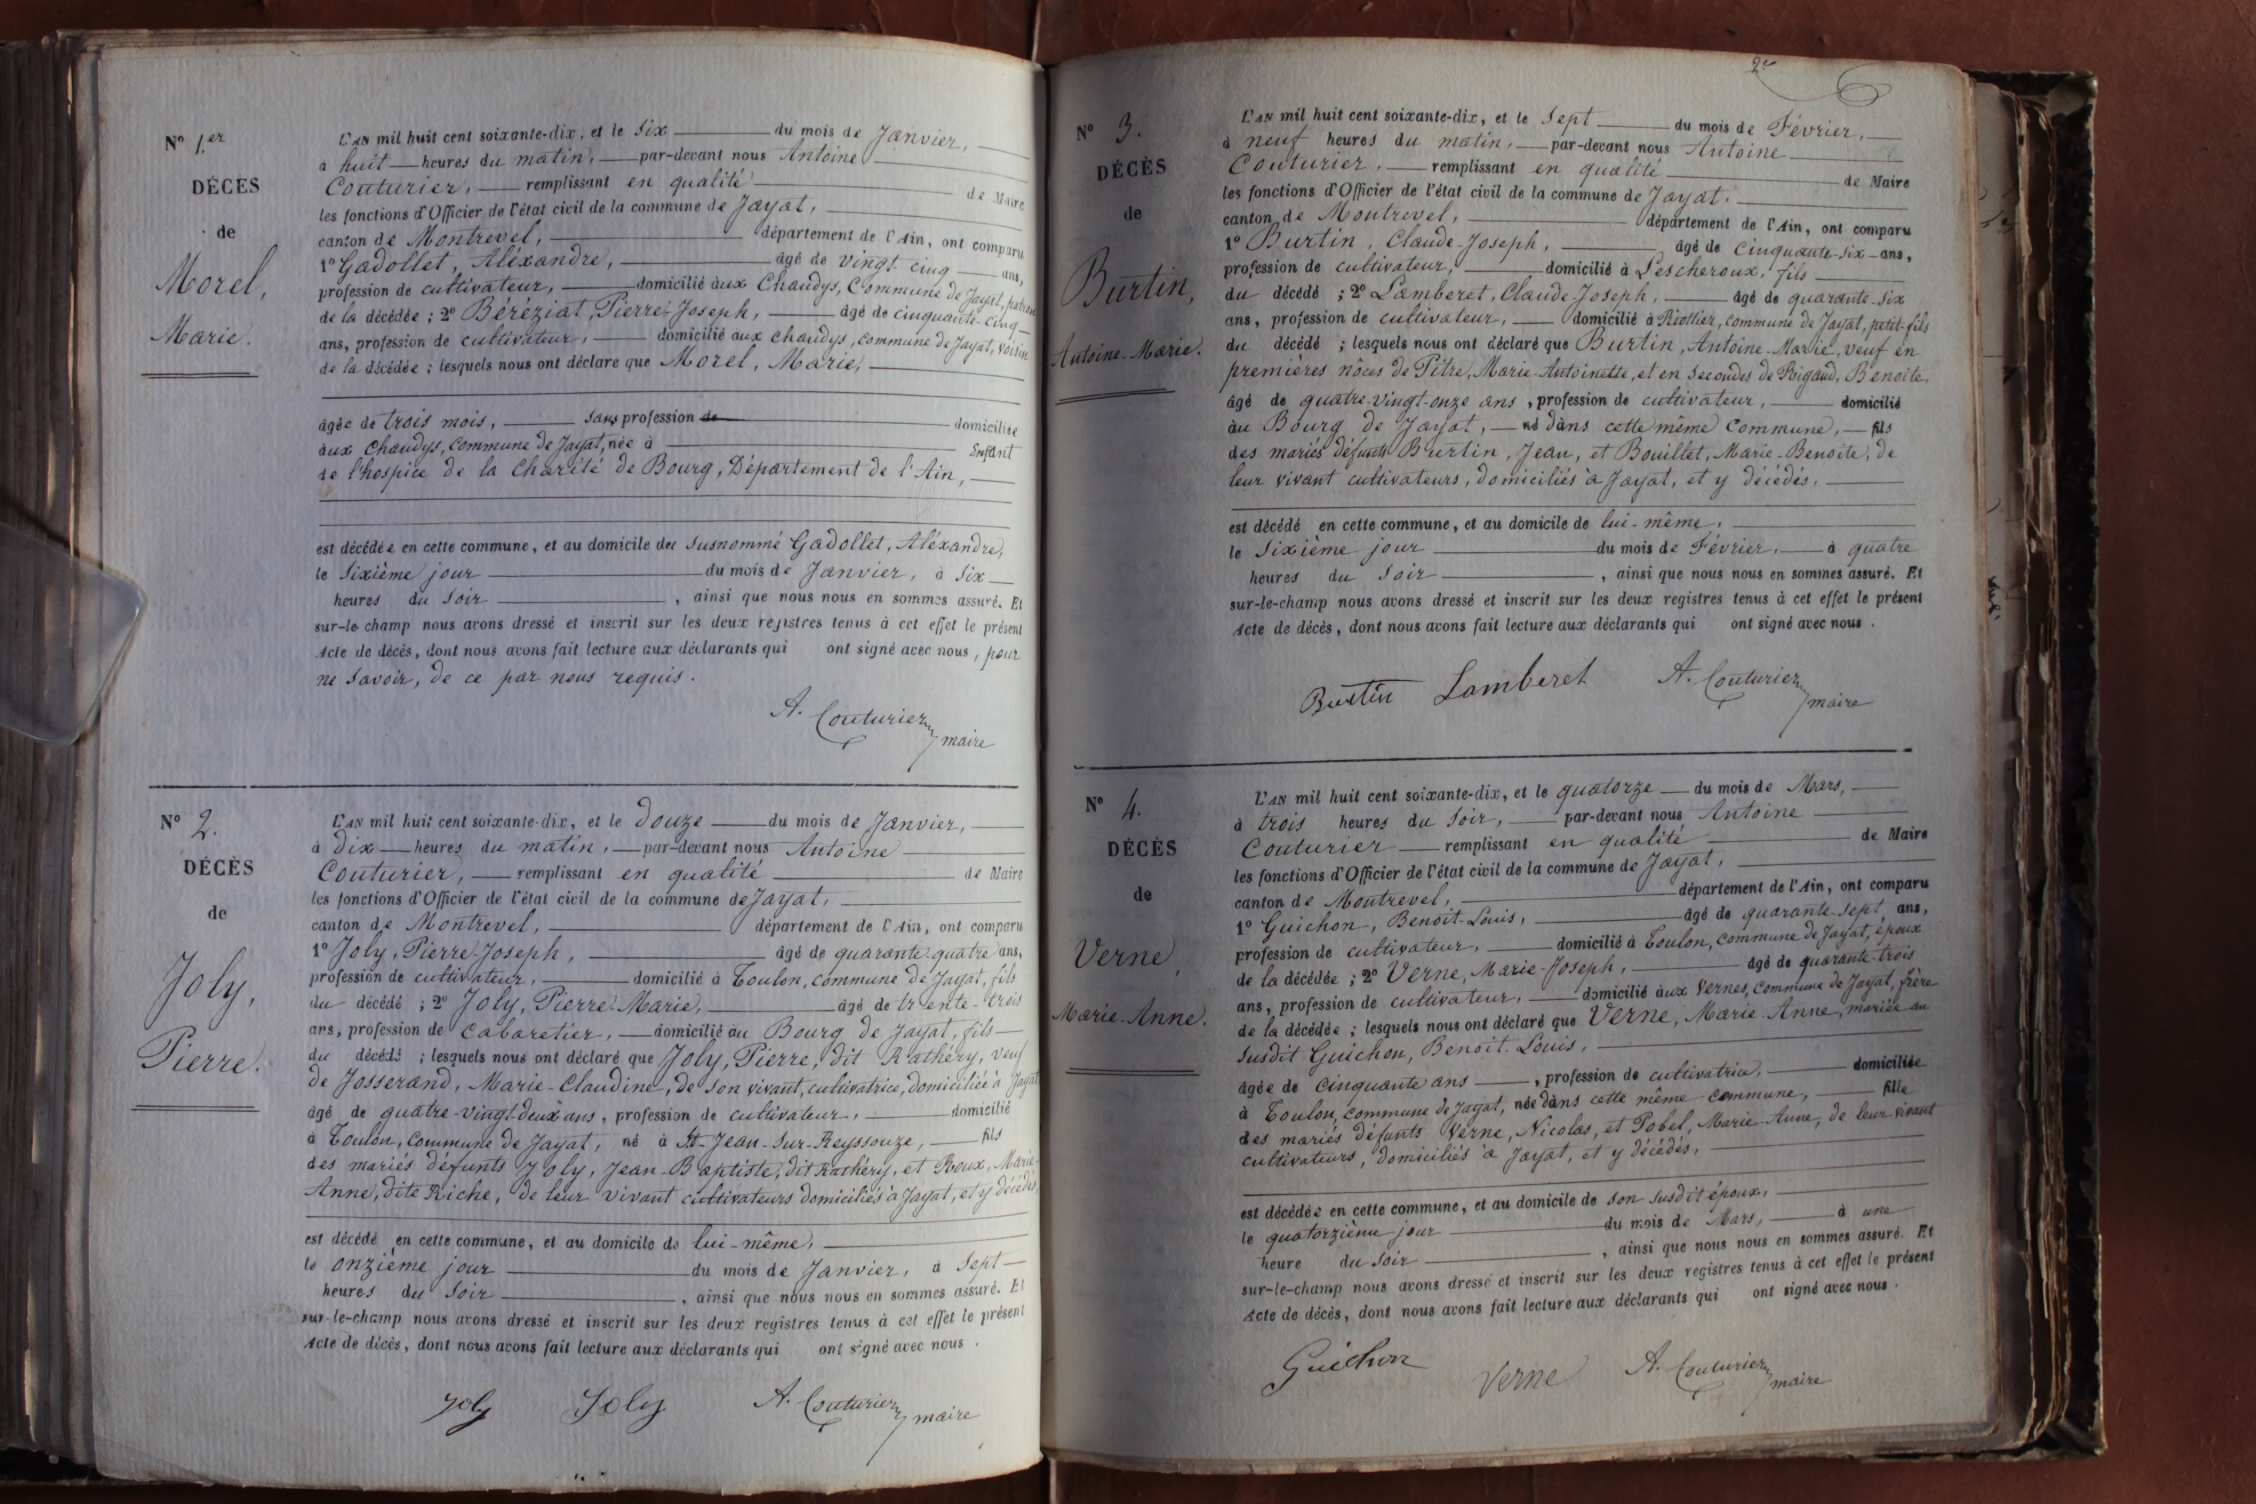 N° 1.er
DÉCÈS
de
Morel,
Marie.
L'AN mil huit cent soixante-dix, et le six du mois de Janvier,
à huit heures du matin, par-devant nous Antoine
Couturier, remplissant en qualité de Maire
les fonctions d'Officier de l'état civil de la commune de Jayat,
canton de Montrevel, département de l'Ain, ont comparu
1° Gadollet, Aléxandre, âgé de vingt cinq ans,
profession de cultivateur, domicilié aux Chaudys, Commune de Jayat, patron
de la décédée ; 2° Béréziat, Pierre-Joseph, âgé de cinquante-cinq
ans, profession de cultivateur, domicilié aux chaudys, commune de Jayat, voisin
de la décédée ; lesquels nous ont déclaré que Morel, Marie,
âgée de trois mois, sans profession de domiciliée
aux Chaudys, commune de Jayat, née à Enfant
de l'hospice de la Charité de Bourg, Département de l'Ain,
est décédée en cette commune, et au domicile du susnommé Gadollet, Aléxandre,
le sixième jour du mois de Janvier, à six
heures du soir, ainsi que nous nous en sommes assuré. Et
sur-le champ nous avons dressé et inscrit sur les deux registres tenus à cet effet le présent
Acte de décès, dont nous avons fait lecture aux déclarants qui ont signé avec nous, pour
ne savoir, de ce par nous requis.
A. Couturier
maire
N° 2.
DÉCÈS
de
Joly,
Pierre.
L'AN mil huit cent soixante-dix, et le douze du mois de Janvier,
à dix heures du matin, par-devant nous Antoine
Couturier, remplissant en qualité de Maire
les fonctions d'Officier de l'état civil de la commune de Jayat,
canton de Montrevel, département de l'Ain, ont comparu
1° Joly, Pierre-Joseph, âgé de quarante-quatre ans,
profession de cultivateur, domicilié à Toulon, commune de Jayat, fils
du décédé ; 2° Joly, Pierre-Marie, âgé de trente-trois
ans, profession de cabaretier, domicilié au Bourg de Jayat, fils
du décédé ; lesquels nous ont déclaré que Joly, Pierre, dit Rathéry, veuf
de Josserand, Marie-Claudine, de son vivant, cultivatrice, domiciliée à Jayat
âgé de quatre-vingt-deux ans, profession de cultivateur, domicilié
à Toulon, commune de Jayat, né à St-Jean-sur-Reyssouze, fils
des mariés défunts Joly, Jean-Baptiste, dit Rathéry, et Roux, Marie-
Anne, dite Riche, de leur vivant cultivateurs domiciliés à Jayat, et y décédés,
est décédé en cette commune, et au domicile de lui-même,
le onzième jour du mois de Janvier, à sept
heures du soir, ainsi que nous nous en sommes assuré. Et
sur-le-champ nous avons dressé et inscrit sur les deux registres tenus à cet effet le présent
Acte de décès, dont nous avons fait lecture aux déclarants qui ont signé avec nous.
Joly Joly A. Couturier
maire
2e
N° 3.
DÉCÈS
de
Burtin,
Antoine-Marie.
L'AN mil huit cent soixante-dix, et le sept du mois de Février,
à neuf heures du matin, par-devant nous Antoine
Couturier, remplissant en qualité de Maire
les fonctions d'Officier de l'état civil de la commune de Jayat,
canton de Montrevel, département de l'Ain, ont comparu
1° Burtin, Claude-Joseph, âgé de cinquante-six ans,
profession de cultivateur, domicilié à Lescheroux, fils
du décédé ; 2° Lamberet, Claude-Joseph, âgé de quarante-six
ans, profession de cultivateur, domicilié à Riottier, commune de Jayat, petit-fils
du décédé ; lesquels nous ont déclaré que Burtin, Antoine-Marie, veuf en
premières nôces de Pitre, Marie-Antoinette, et en secondes de Rigaud, Benoite,
âgé de quatre-vingt-onze ans, profession de cultivateur, domicilié
au Bourg de Jayat, né dans cette même commune, fils
des mariés défunts Burtin, Jean, et Bouillet, Marie-Benoite, de
leur vivant cultivateurs, domiciliés à Jayat, et y décédés,
est décédé en cette commune, et au domicile de lui-même,
le sixième jour du mois de Février, à quatre
heures du soir, ainsi que nous nous en sommes assuré. Et
sur-le-champ nous avons dressé et inscrit sur les deux registres tenus à cet effet le présent
Acte de décès, dont nous avons fait lecture aux déclarants qui ont signé avec nous.
Burtin Lamberet A. Couturier
maire
N° 4.
DÉCÈS
de
Verne,
Marie-Anne.
L'AN mil huit cent soixante-dix, et le quatorze du mois de Mars,
à trois heures du soir, par-devant nous Antoine
Couturier remplissant en qualité de Maire
les fonctions d'Officier de l'état civil de la commune de Jayat,
canton de Montrevel, département de l'Ain, ont comparu
1° Guichon, Benoît-Louis, âgé de quarante-sept ans,
profession de cultivateur, domicilié à Toulon, commune de Jayat, époux
de la décédée ; 2° Verne, Marie-Joseph, âgé de quarante-trois
ans, profession de cultivateur, domicilié aux Vernes, commune de Jayat, frère
de la décédée ; lesquels nous ont déclaré que Verne, Marie-Anne, mariée au
susdit Guichon, Benoit-Louis,
âgée de cinquante ans, profession de cultivatrice, domiciliée
à Toulon, commune de Jayat, née dans cette même commune, fille
des mariés défunts Verne, Nicolas, et Pobel, Marie-Anne, de leur vivant
cultivateurs, domiciliés à Jayat, et y décédés,
est décédée en cette commune, et au domicile de son susdit époux,
le quatorzième jour du mois de Mars, à une
heure du soir, ainsi que nous nous en sommes assuré. Et
sur-le-champ nous avons dressé et inscrit sur les deux registres tenus à cet effet le présent
Acte de décès, dont nous avons fait lecture aux déclarants qui ont signé avec nous.
Guichon Verne A. Couturier
maire